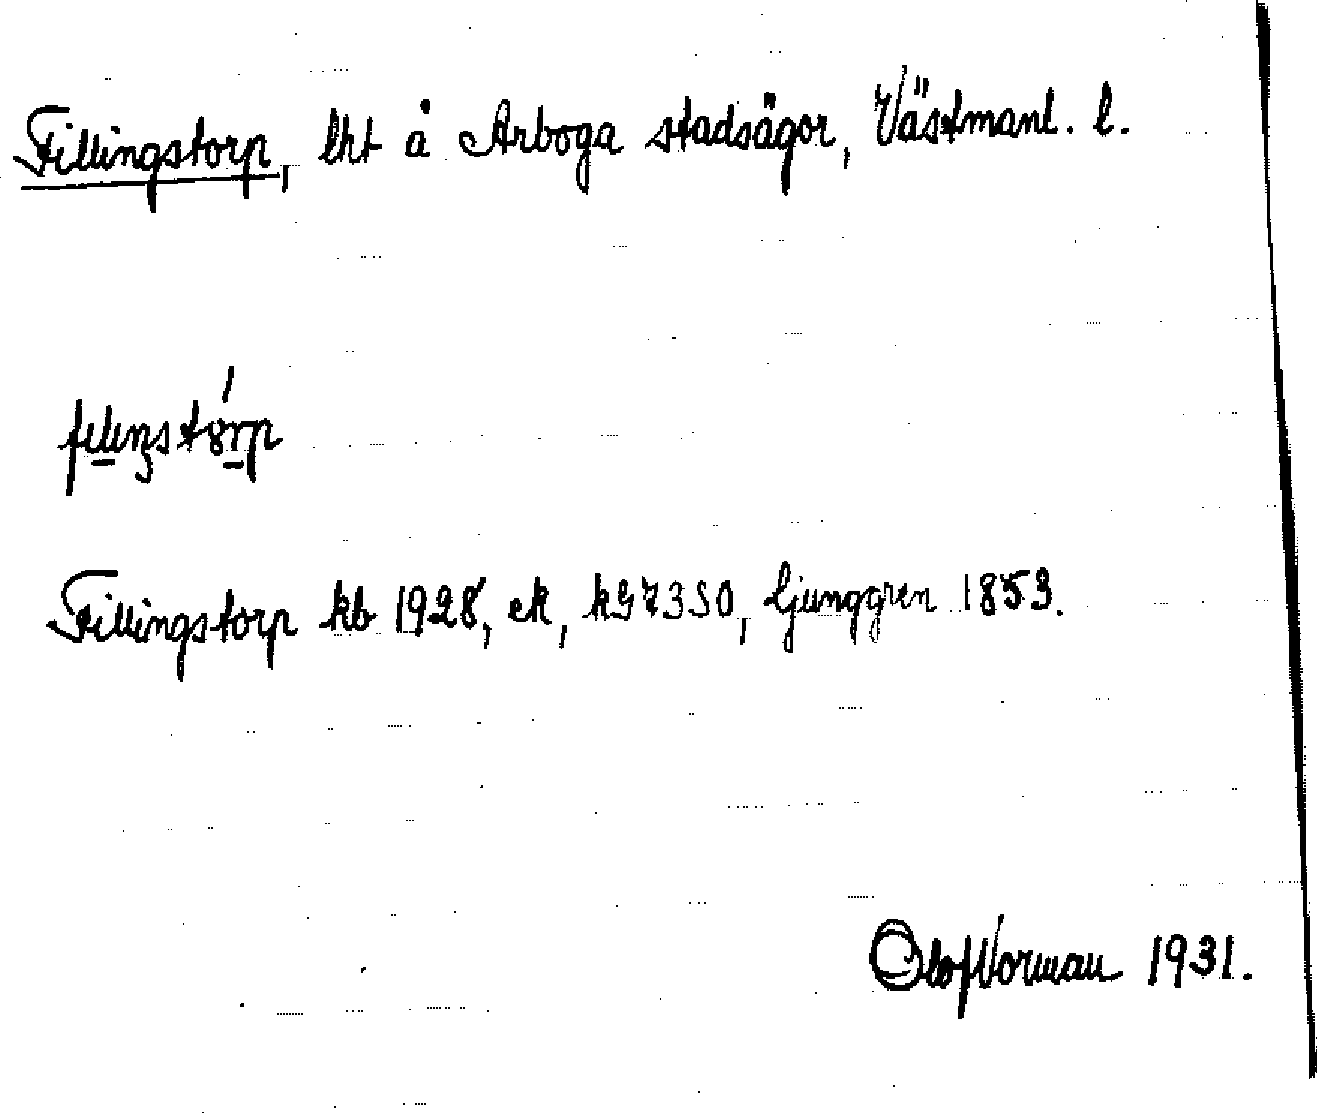 Fillingstorp, lht å Arboga stadsägor, Västmanl. l.
Fillingstorp kb 1928, ek, kG7350, Ljunggren 1853.
Olof Norman 1931.